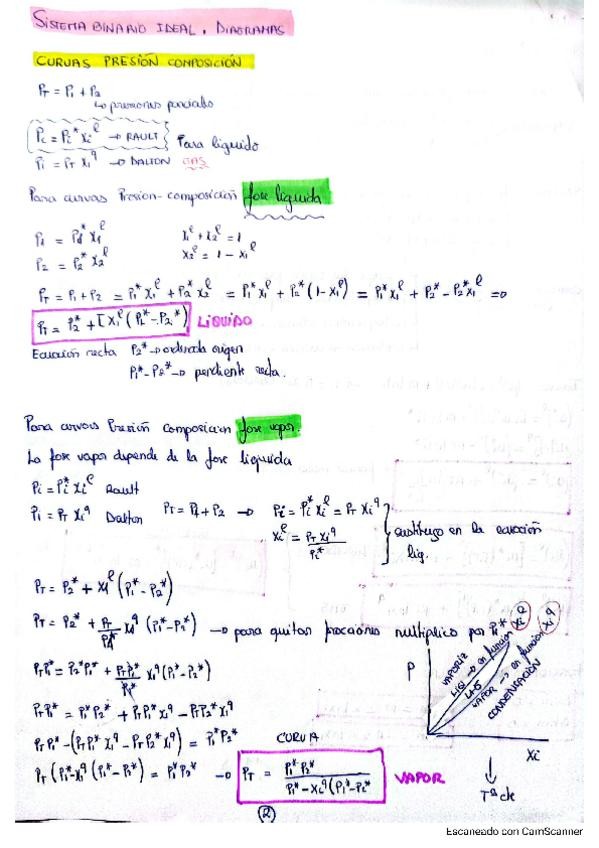 SISTEMA BINARIO IDEAL, DIAGRAMAS
CURVAS PRESIÓN COMPOSICIÓN
P_T = P_1 + P_2
↳ presiones parciales
P_i = P_i* x_i^l → RAULT } Para líquido
P_i = P_T x_i^g → DALTON GAS
Para curvas Presión-composición fase líquida
P_1 = P_1* x_1^l    x_1^l + x_2^l = 1
P_2 = P_2* x_2^l    x_2^l = 1 - x_1^l
P_T = P_1 + P_2 = P_1* x_1^l + P_2* x_2^l = P_1* x_1^l + P_2* (1 - x_1^l) = P_1* x_1^l + P_2* - P_2* x_1^l ⇒
P_T = P_2* + [x_1^l (P_1* - P_2*) LIQUIDO
Ecuación recta P_2* → ordenada origen
P_1* - P_2* → pendiente recta.
Para curvas Presión composición fase vapor.
La fase vapor depende de la fase líquida
P_i = P_i* x_i^l Rault
P_i = P_T x_i^g Dalton    P_T = P_1 + P_2 → P_i = P_i* x_i^l = P_T x_i^g
x_i^l = P_T x_i^g / P_i* } sustituyo en la ecuación
liq.
P_T = P_2* + x_1^l (P_1* - P_2*)
P_T = P_2* + P_T/P_1* x_1^g (P_1* - P_2*) → para quitar fracciones multiplico por P_1*
P_T P_1* = P_2* P_1* + P_T P_1*/P_1* x_1^g (P_1* - P_2*)
P_T P_1* = P_1* P_2* + P_T P_1* x_1^g - P_T P_2* x_1^g
P_T P_1* - (P_T P_1* x_1^g - P_T P_2* x_1^g) = P_1* P_2*
P_T (P_1* - x_1^g (P_1* - P_2*) = P_1* P_2* →
CURVA
P_T = P_1* P_2* / P_1* - x_1^g (P_1* - P_2* VAPOR
P
VAPORIZ
LIQ → en función x_i^l
L+G
VAPOR → en función x_i^g
CONDENSACIÓN
x_i
↓
Tª cte
2
Escaneado con CamScanner